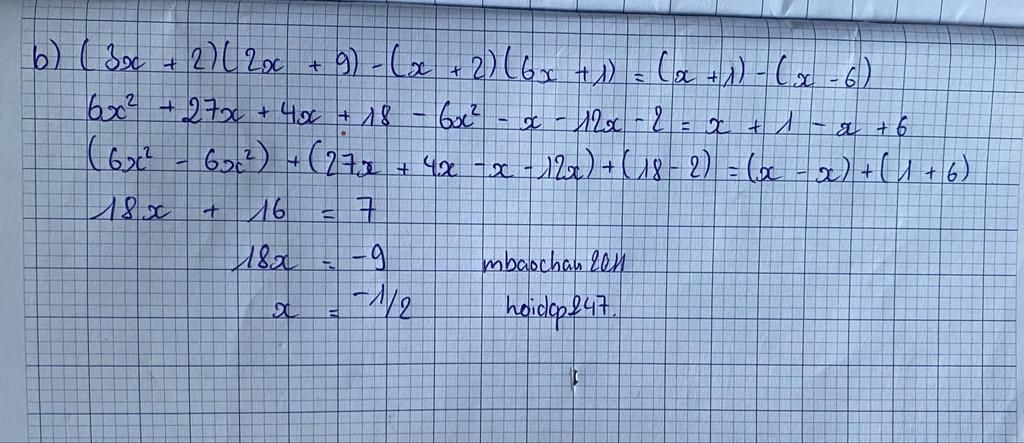 b) (3x + 2)(2x + 9) - (x + 2)(6x + 1) = (x + 1) - (x - 6)
6x² + 27x + 4x + 18 - 6x² - x - 12x - 2 = x + 1 - x + 6
(6x² - 6x²) + (27x + 4x - x - 12x) + (18 - 2) = (x - x) + (1 + 6)
18x + 16 = 7
18x = -9
mbaochau2011
x = -1/2
hoidap247.